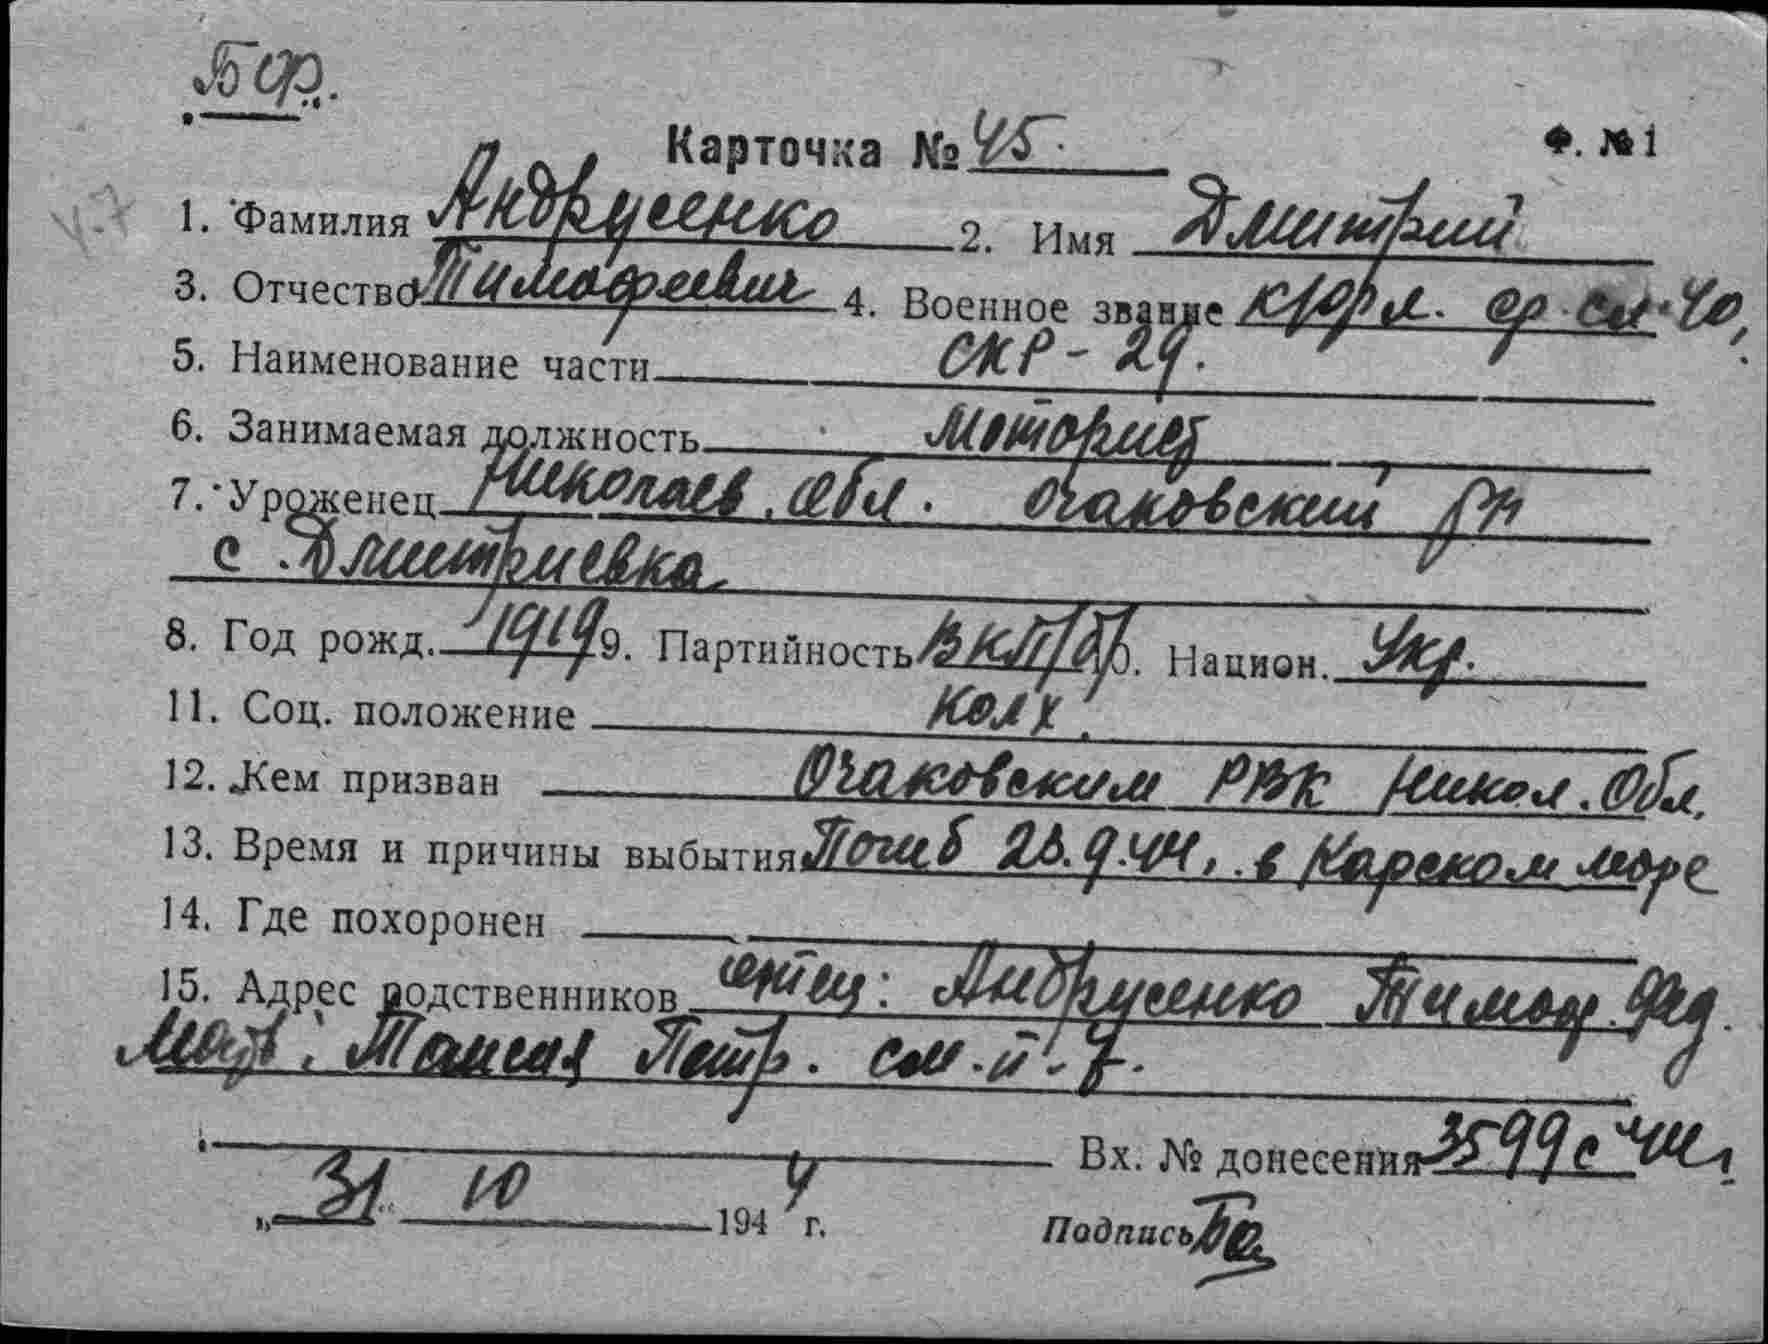 Карточка № 45. Ф. № 1
1. Фамилия Андрусенко 2. Имя Дмитрий
3. Отчество Тимофеевич 4. Военное звание ср сл. 40,
5. Наименование части СКР-29.
6. Занимаемая должность Моторист
7. Уроженец Николаев. Обл. Очаковский рн
с. Дмитриевка
8. Год рожд. 1919 9. Партийность ВКП/б/ 10. Национ. Укр.
11. Соц. положение Колх.
12. Кем призван Очаковским РВК Никол. Обл.
13. Время и причины выбытия Погиб 23.9.44, в Карском море
14. Где похоронен
15. Адрес родственников отец: Андрусенко Тимоф. Фед.
Мать: Таисия Петр. см. п. 7.
Вх. № донесения 3599с 44г
„31 10 1944 г. Подпись